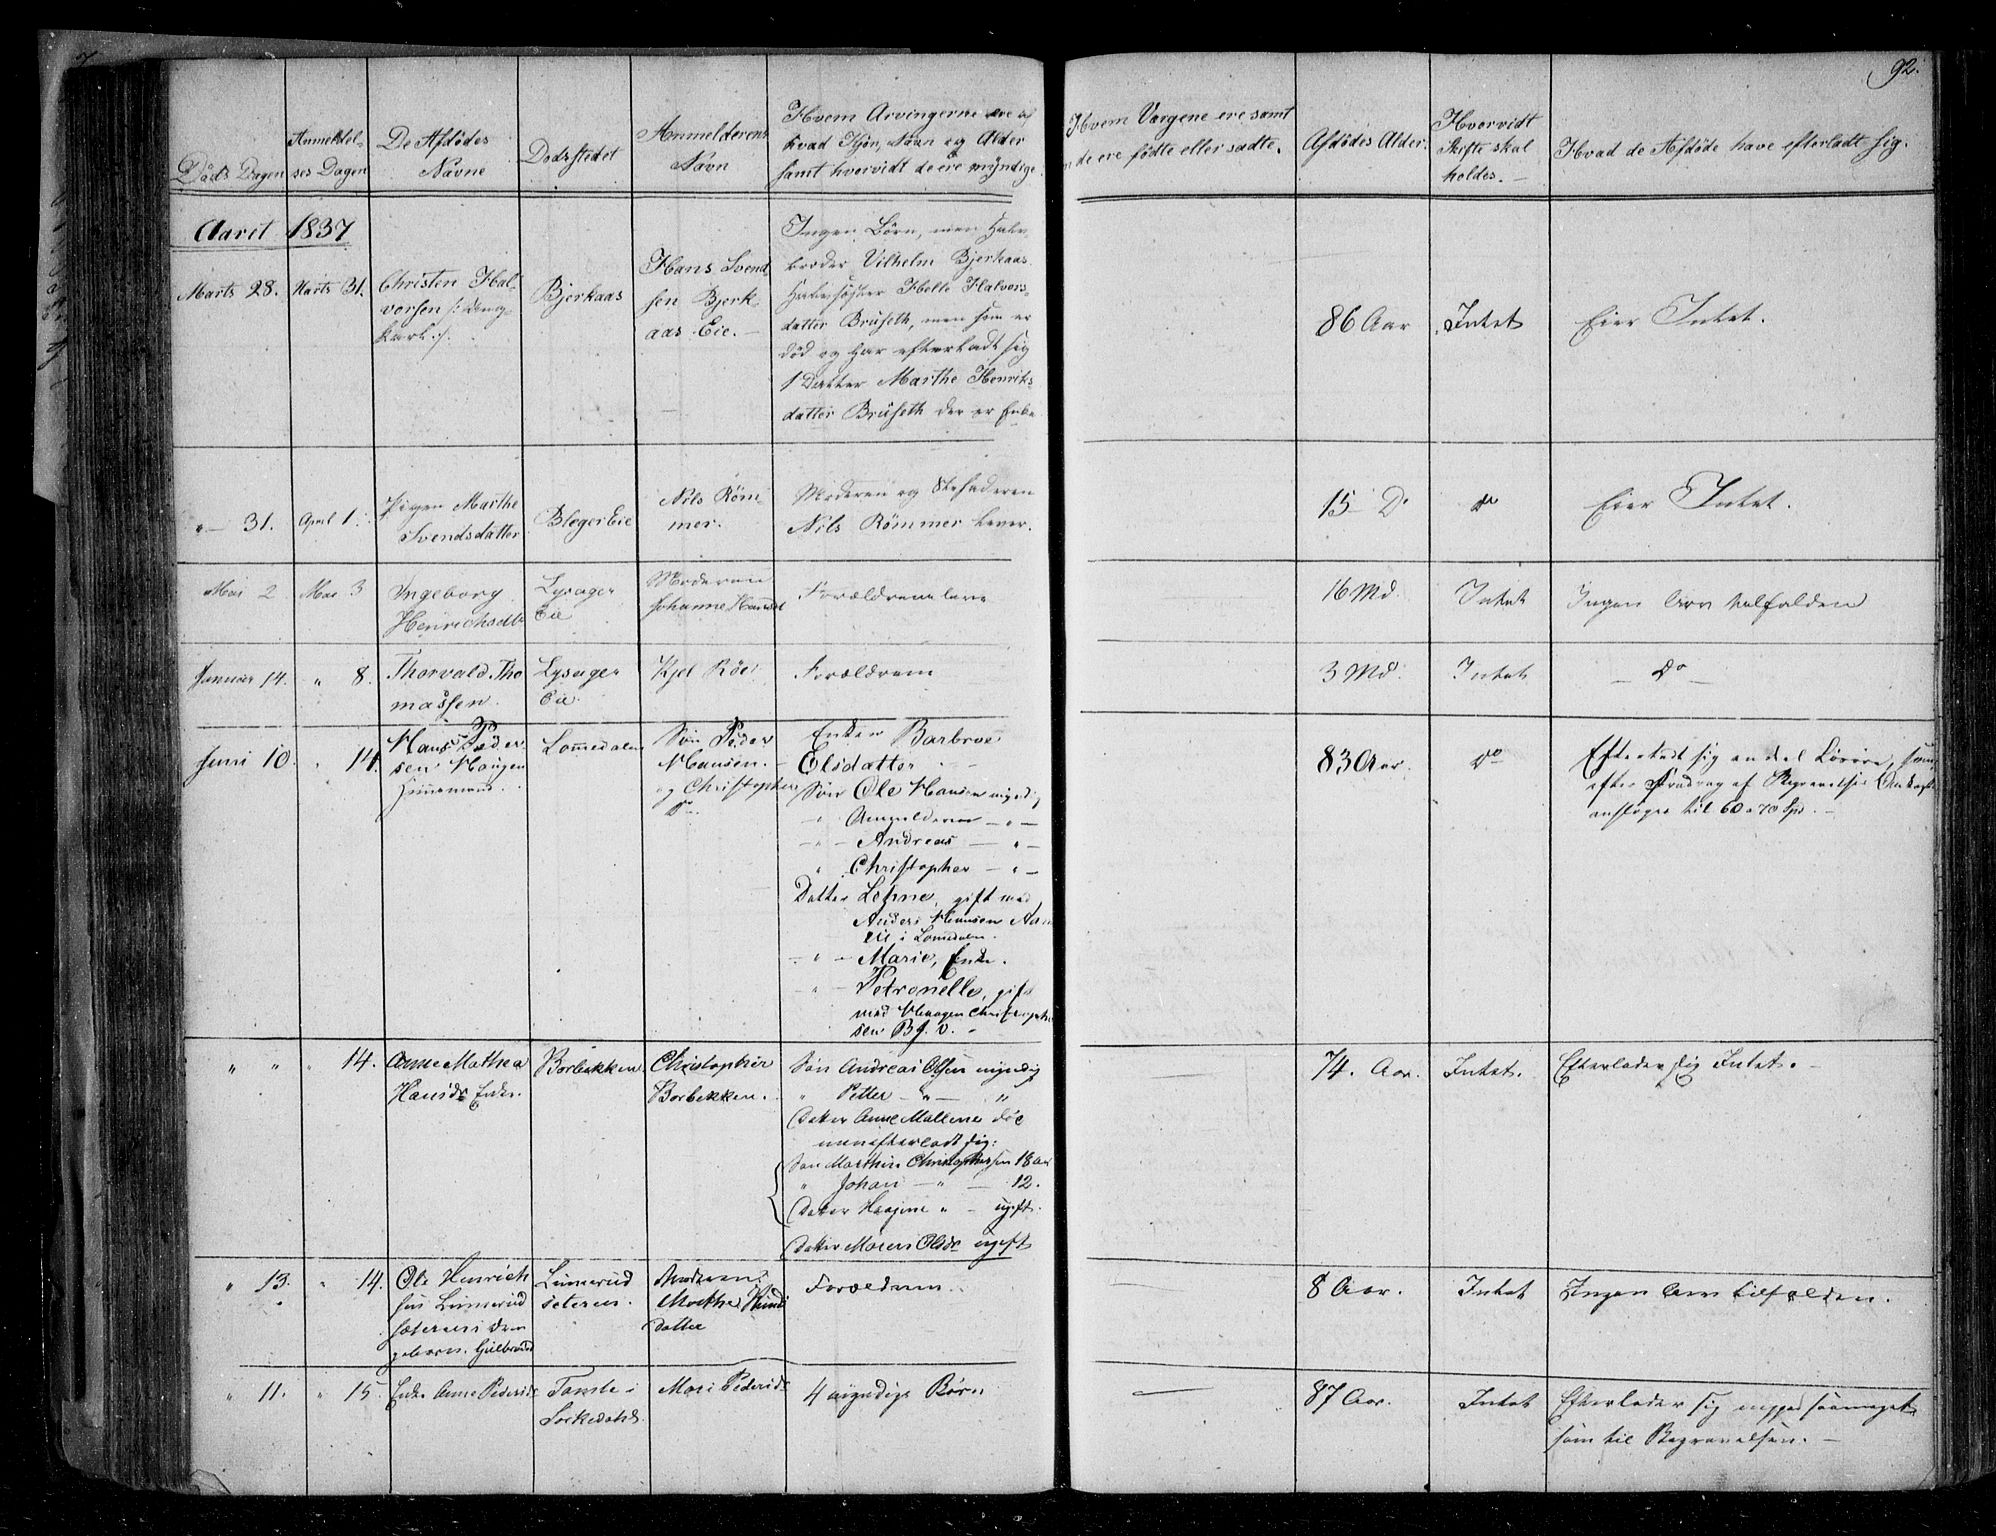 92.
Döds Dagen
Anmeldel-
ses Dagen
De Afdödes
Navne
Dödsstedet
Anmelderens
Navn
Hvem Arvingerne ere af
hvad Kjön, Navn og Alder
samt hvorvidt de ere myndige.
Hvem Værgene ere samt
de ere födte eller sadte.
Afdödes Alder.
Hvorvidt
Skifte skal
holdes.
Hvad de Afdöde have efterladt sig.
Aaret 1837
Marts 28.
Marts 31.
Christen Hal-
vorsen
Bjerkaas
Hans Svend
sen Bjerk-
aas Eie.
Ingen Börn, men Halv-
broder Vilhelm Bjerkaas
Halvsöster Helle Halvors-
datter Bruseth, men som er
död og har efterladt sig
1 Datter Marthe Henriks-
datter Bruseth der er Enke
86 Aar
Intet
Eier Intet.
" 31.
April 1.
Pigen Marthe
Svendsdatter
Bleger Eie
Nils Röm-
mer.
Moderen og Stefaderen
Nils Römmer lever.
15 Do
do
Eier Intet.
Mai 2
Mai 3
Ingeborg
Henrichsdtr
Lysager
Eie
Moderen
Johanne
Forældrene leve
16 Md.
Intet
Ingen Arv tilfalden
Januar 14.
" 8.
Thorvald Tho
massen.
Lysager
Eie.
Kjel Röe
Forældrene
3 Md.
Intet
Do
Juni 10.
" 14.
Hans Peder
sen Haugen
Lommedalen
Sön Peder
Hansen.
og Christopher
Do
Enken Barbroe
Olsdatter
Sön Ole Hansen myndig
" Anmelderen "
" Andreas "
" Christopher "
Datter Lehne, gift med
Anders Hansen
Eie i Lomedalen.
" Marie, Enke.
" Petronelle, gift
med Haagen Christophe
sen
83 Aar.
Do
Efterladt sig en deel Lösöre, som
efter Fradrag af Begravelses Omkost
anslages til 60 a 70 Spd.
" "
" 14.
Anne Mathea
Hansdr Enke.
Borbekken
Christopher
Borbekken.
Sön Andreas Olsen myndig
" Petter " "
Datter Anne Mallene död
men efterladt sig:
Sön Marthin Christophersen 18 Aar
" Johan " 12.
Datter " ugift.
Datter Maren Olsdr ugift
74. Aar.
Intet.
Efterlader sig Intet.
" 13.
" 14.
Ole Henrich
sen Linnerud
sæteren
Linnerud
seteren.
Moderen
Marthe
Datter
Forældrene
8 Aar.
Intet
Ingen Arv tilfalden.
" 11.
" 15.
Enke Anne Pedersdr
Tomte i
Sörkedalen
Mari Pedersdr
4 myndige Börn
87 Aar.
Intet
Efterlader sig neppe saameget
som til Begravelsen.